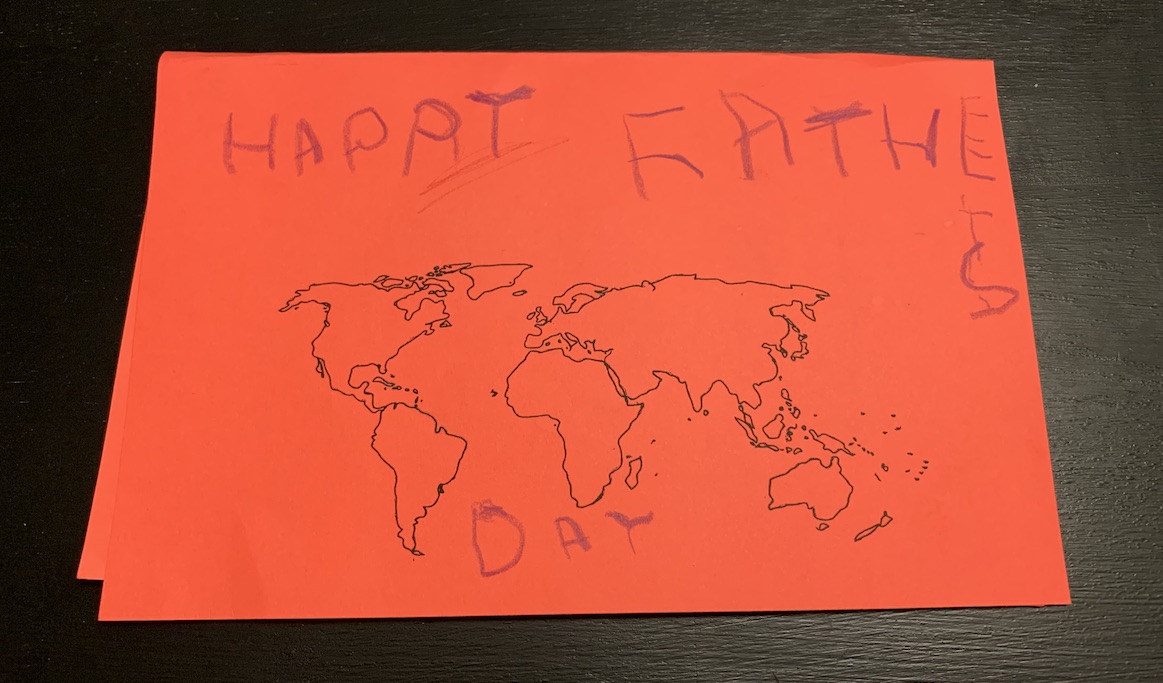 HAPPY FATHErS
DAY